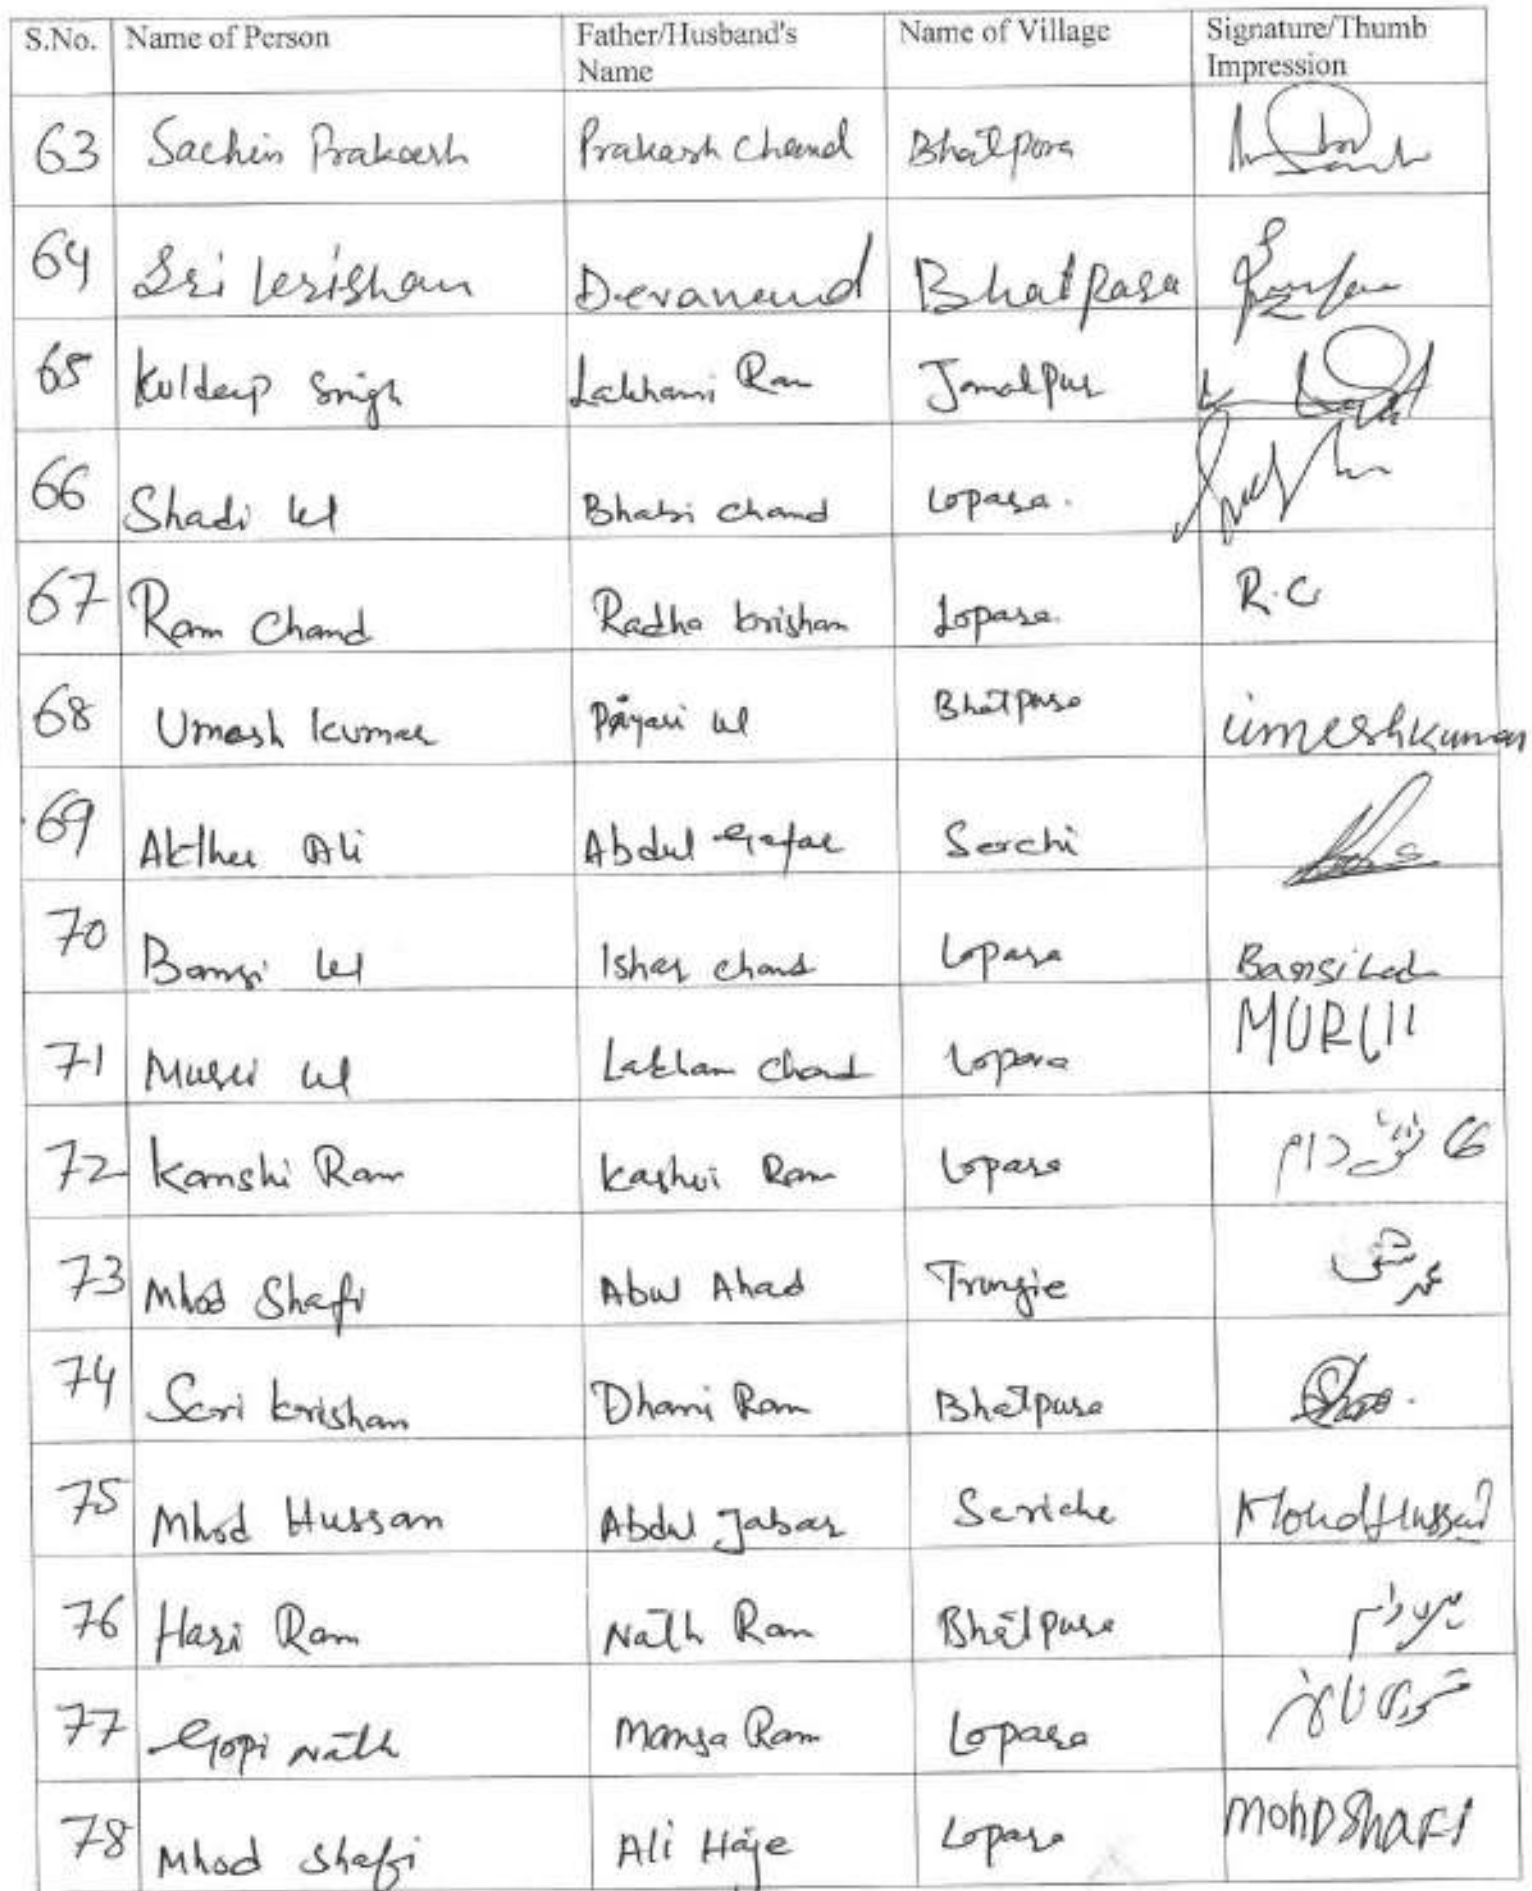 S.No. Name of Person Father/Husband's Name Name of Village Signature/Thumb Impression
63 Sachin Prakash Prakash Chand Bhatpora
64 Sri krishan Devanand Bhatpara
65 Kuldeep Singh Lakhami Ram Jamalpur
66 Shadi lel Bhabi Chand Lopara.
67 Ram Chand Radha krishan Lopara. R.C
68 Umesh kumar Payari lel Bhatpura umeshkumar
69 Akther Ali Abdul Gafar Serchi
70 Bansi lel Ishar chand Lopara Bansi Lal
71 Murli lel Lakham Chand Lopara MURLII
72 Kanshi Ram Kashvi Ram Lopara کانشی رام
73 Mhod Shafi Abul Ahad Trungie محمد شفیع
74 Seri krishan Dhani Ram Bhatpura
75 Mhod Hussan Abdul Jabar Seriche Mohd Hussain
76 Hari Ram Nath Ram Bhatpura
77 Gopi Nath Mansa Ram Lopara
78 Mhod Shafi Ali Haje Lopara MOHD SHAFI